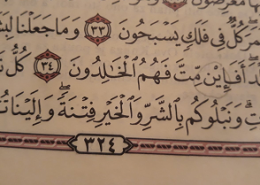 مَرَ كُلٌّ فِى فَلَكٍ يَسْبَحُونَ ٣٣ وَمَا جَعَلْنَا
أَفَإِي۟ن مِّتَّ فَهُمُ ٱلْخَـٰلِدُونَ ٣٤ كُلُّ
وَنَبْلُوكُم بِٱلشَّرِّ وَٱلْخَيْرِ فِتْنَةً وَإِلَيْنَا
٣٢٤